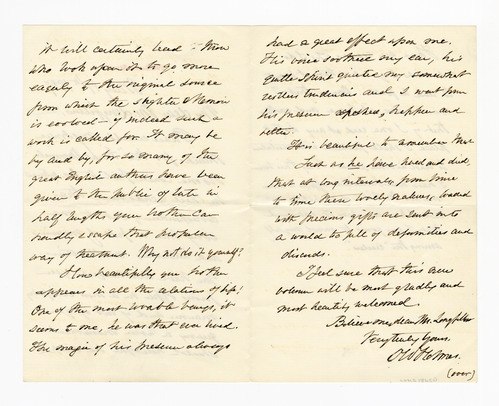 it will certainly lead - those
who look upon it to go more
easily to the original source
from which the slighter Memoir
is evolved - if indeed such a
work is called for. It may be
by and by, for so many of the
great English authors have been
given to the public of late in
half lengths your brother can
hardly escape that
way of treatment. Why not do it yourself?
How beautifully your brother
appears in all the relations of life!
One of the most lovable beings, it
seems to me, he was that ever lived.
The magic of his presence always
had a great effect upon me,
His voice soothed my ear, his
gentle spirit quieted my somewhat
restless tendencies and I went from
his presence happier and
better.
It is beautiful to remember that
Such as he have lived and died,
that at long intervals, from time
to time these lovely natures, loaded
with precious gifts are sent into
a world so full of deformities and
discords.
I feel sure that this new
volume will be most gladly and
most heartily welcomed.
Believe me, dear Mr. Longfellow
Very truly yours,
O W Holmes.
(over)